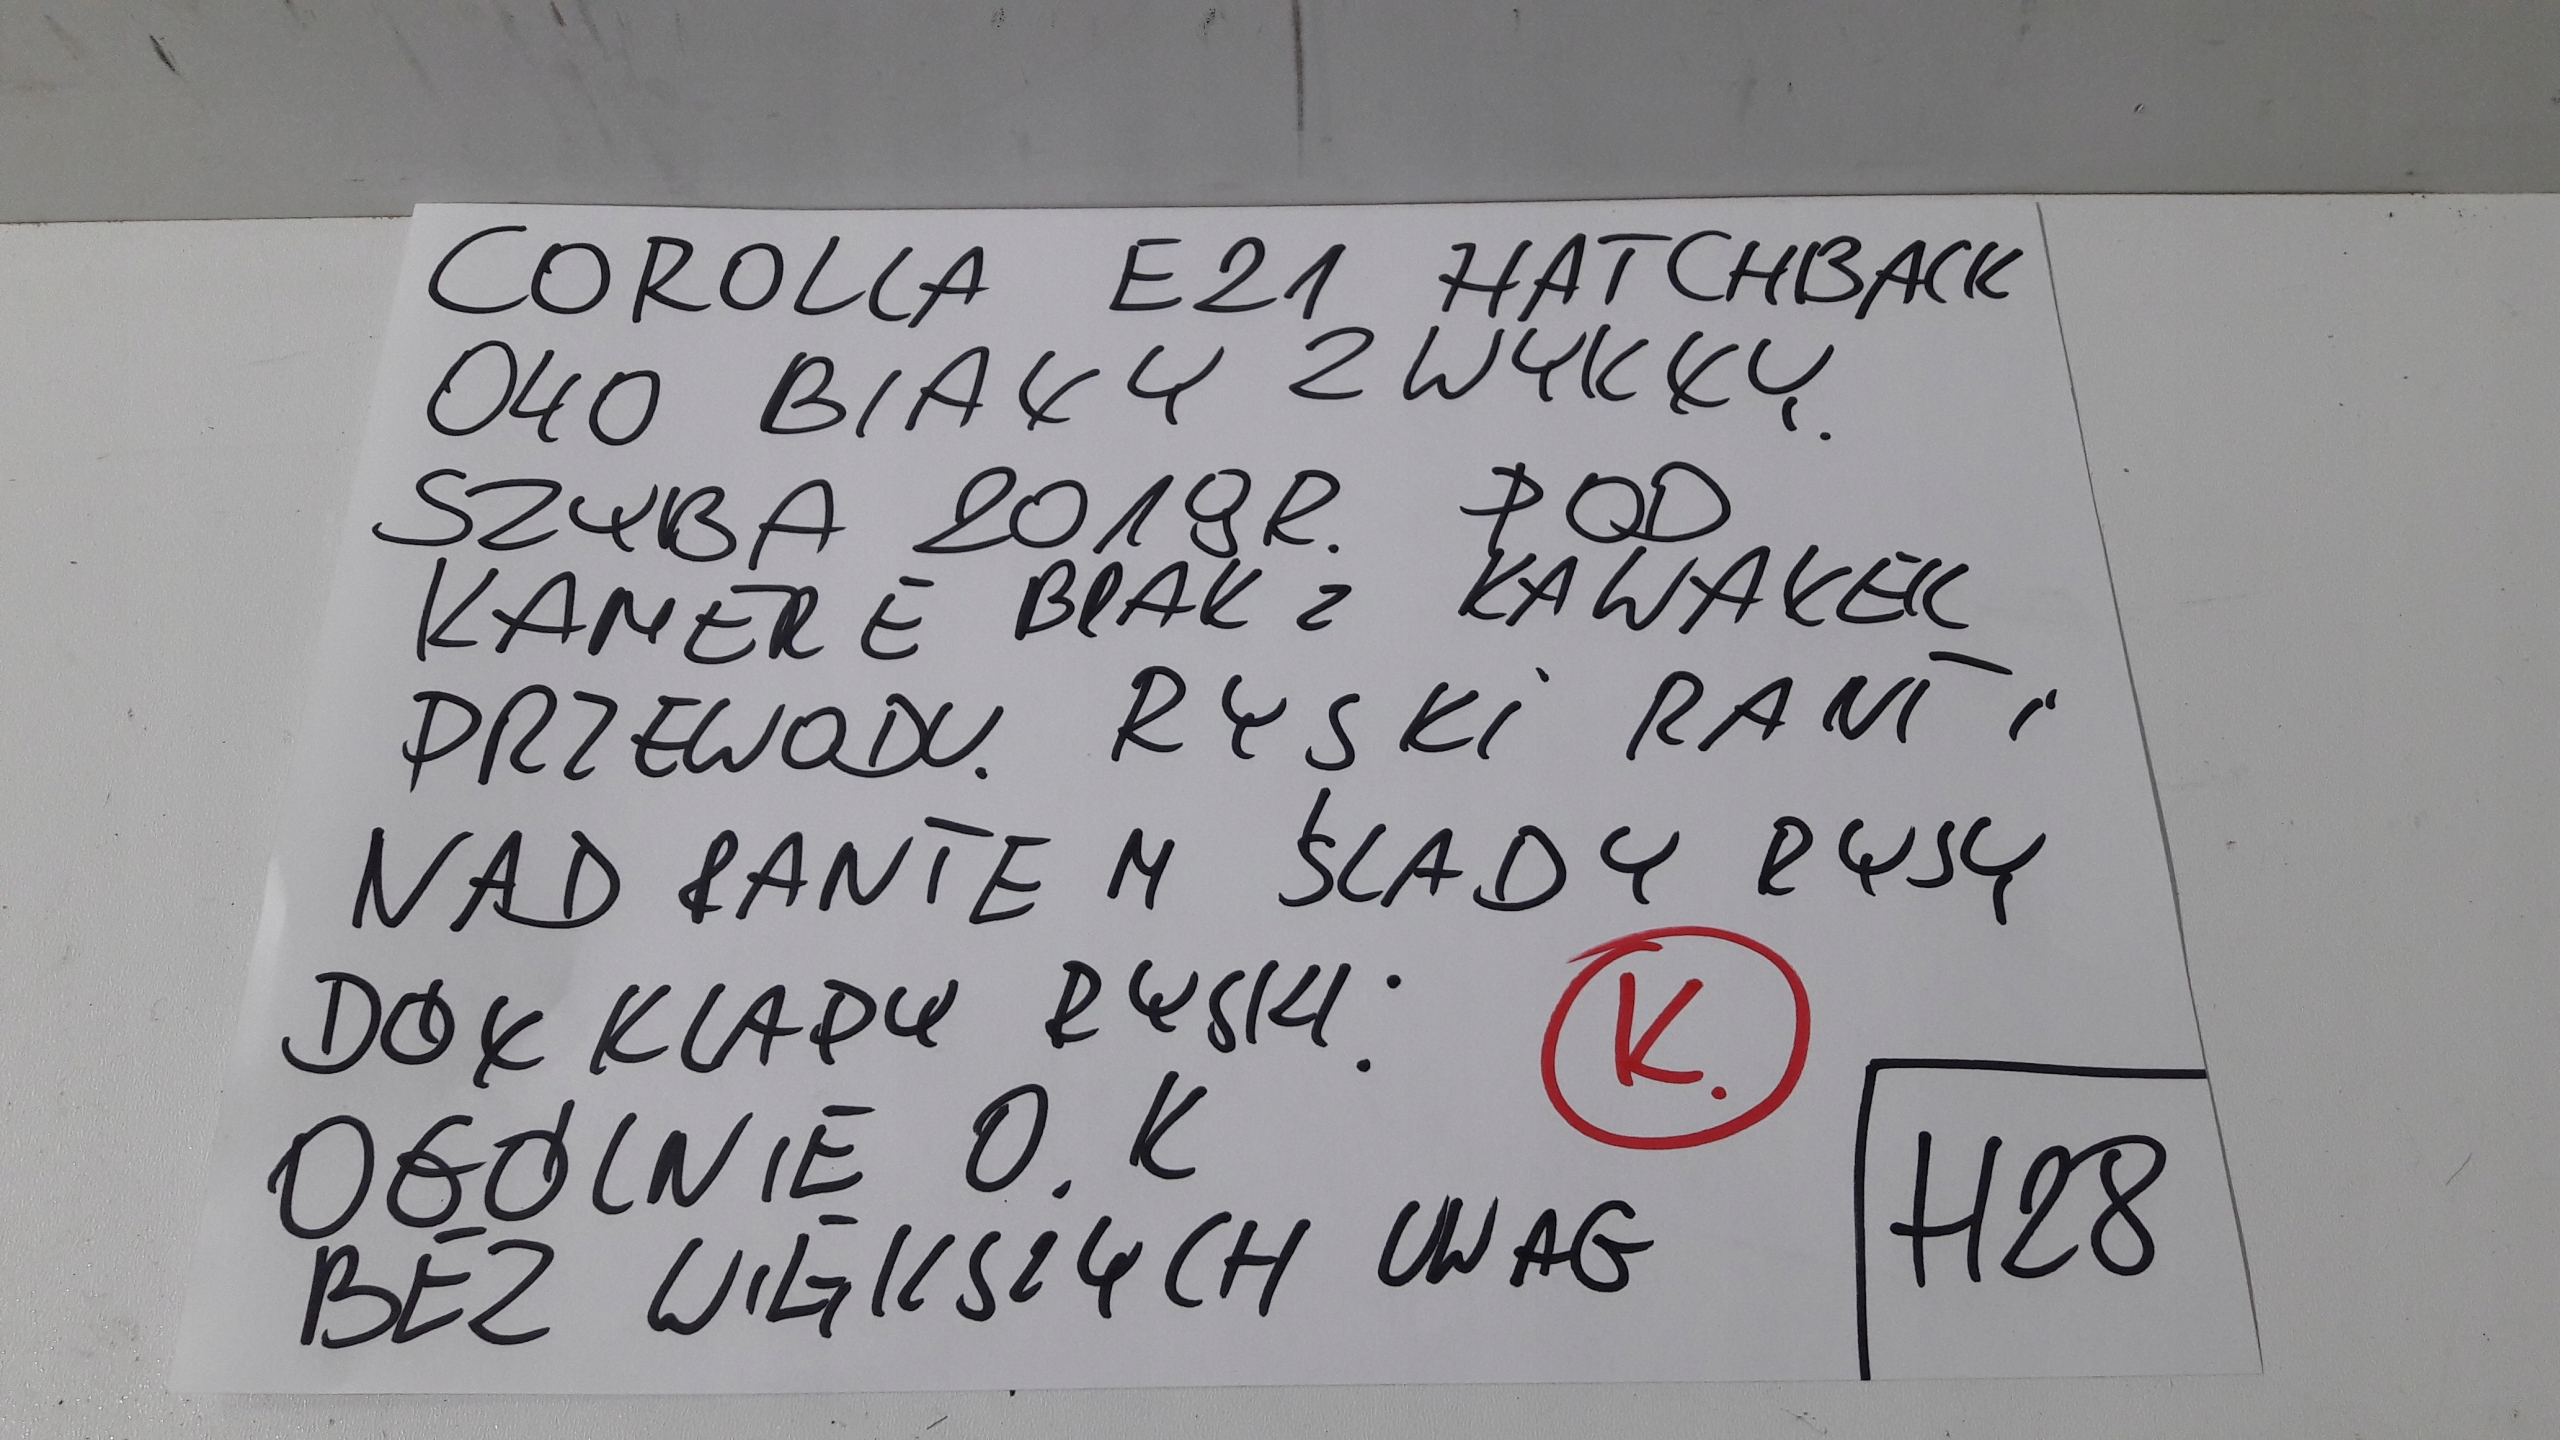 COROLLA E21 HATCHBACK
040 BIAŁY ZWYKŁY.
SZYBA 2019R. POD
KAMERE BRAK Z KAWAŁEK
PRZEWODU. RYSKI RANT i
NAD RANTEM ŚLADY RYSY
DÓŁ KLAPY RYSKI.
OGÓLNIE O.K
BEZ WIĘKSZYCH UWAG
K.
H28